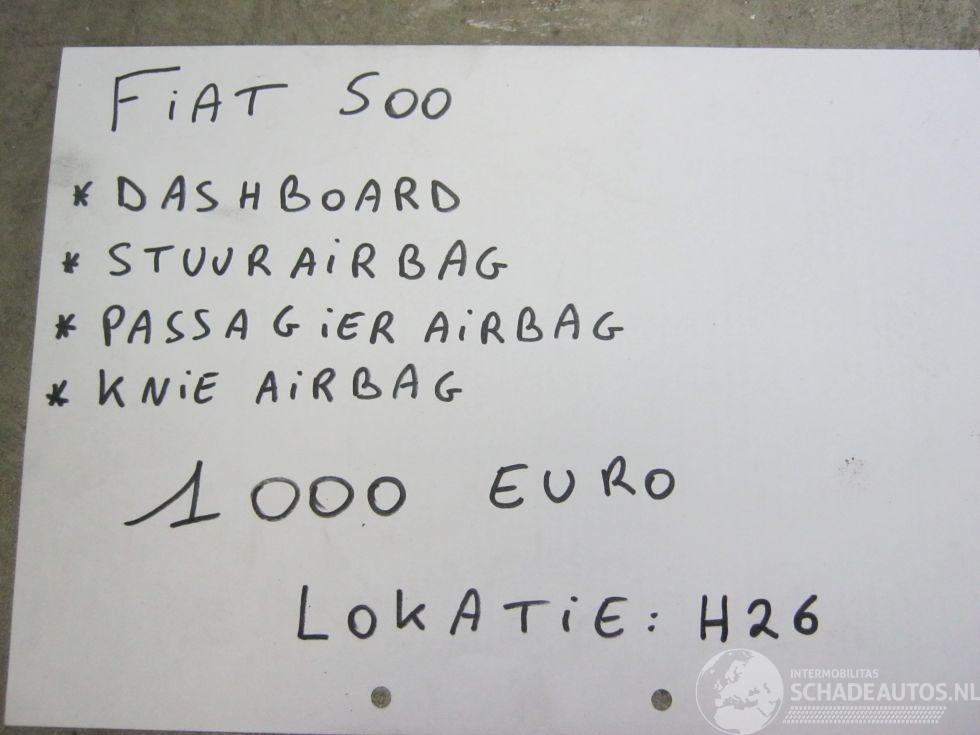 FiAT 500
* DASHBOARD
* STUUR AiRBAG
* PASSAGiER AiRBAG
* KNiE AiRBAG
1000 EURO
LOKATiE: H26
INTERMOBILITAS
SCHADEAUTOS.NL